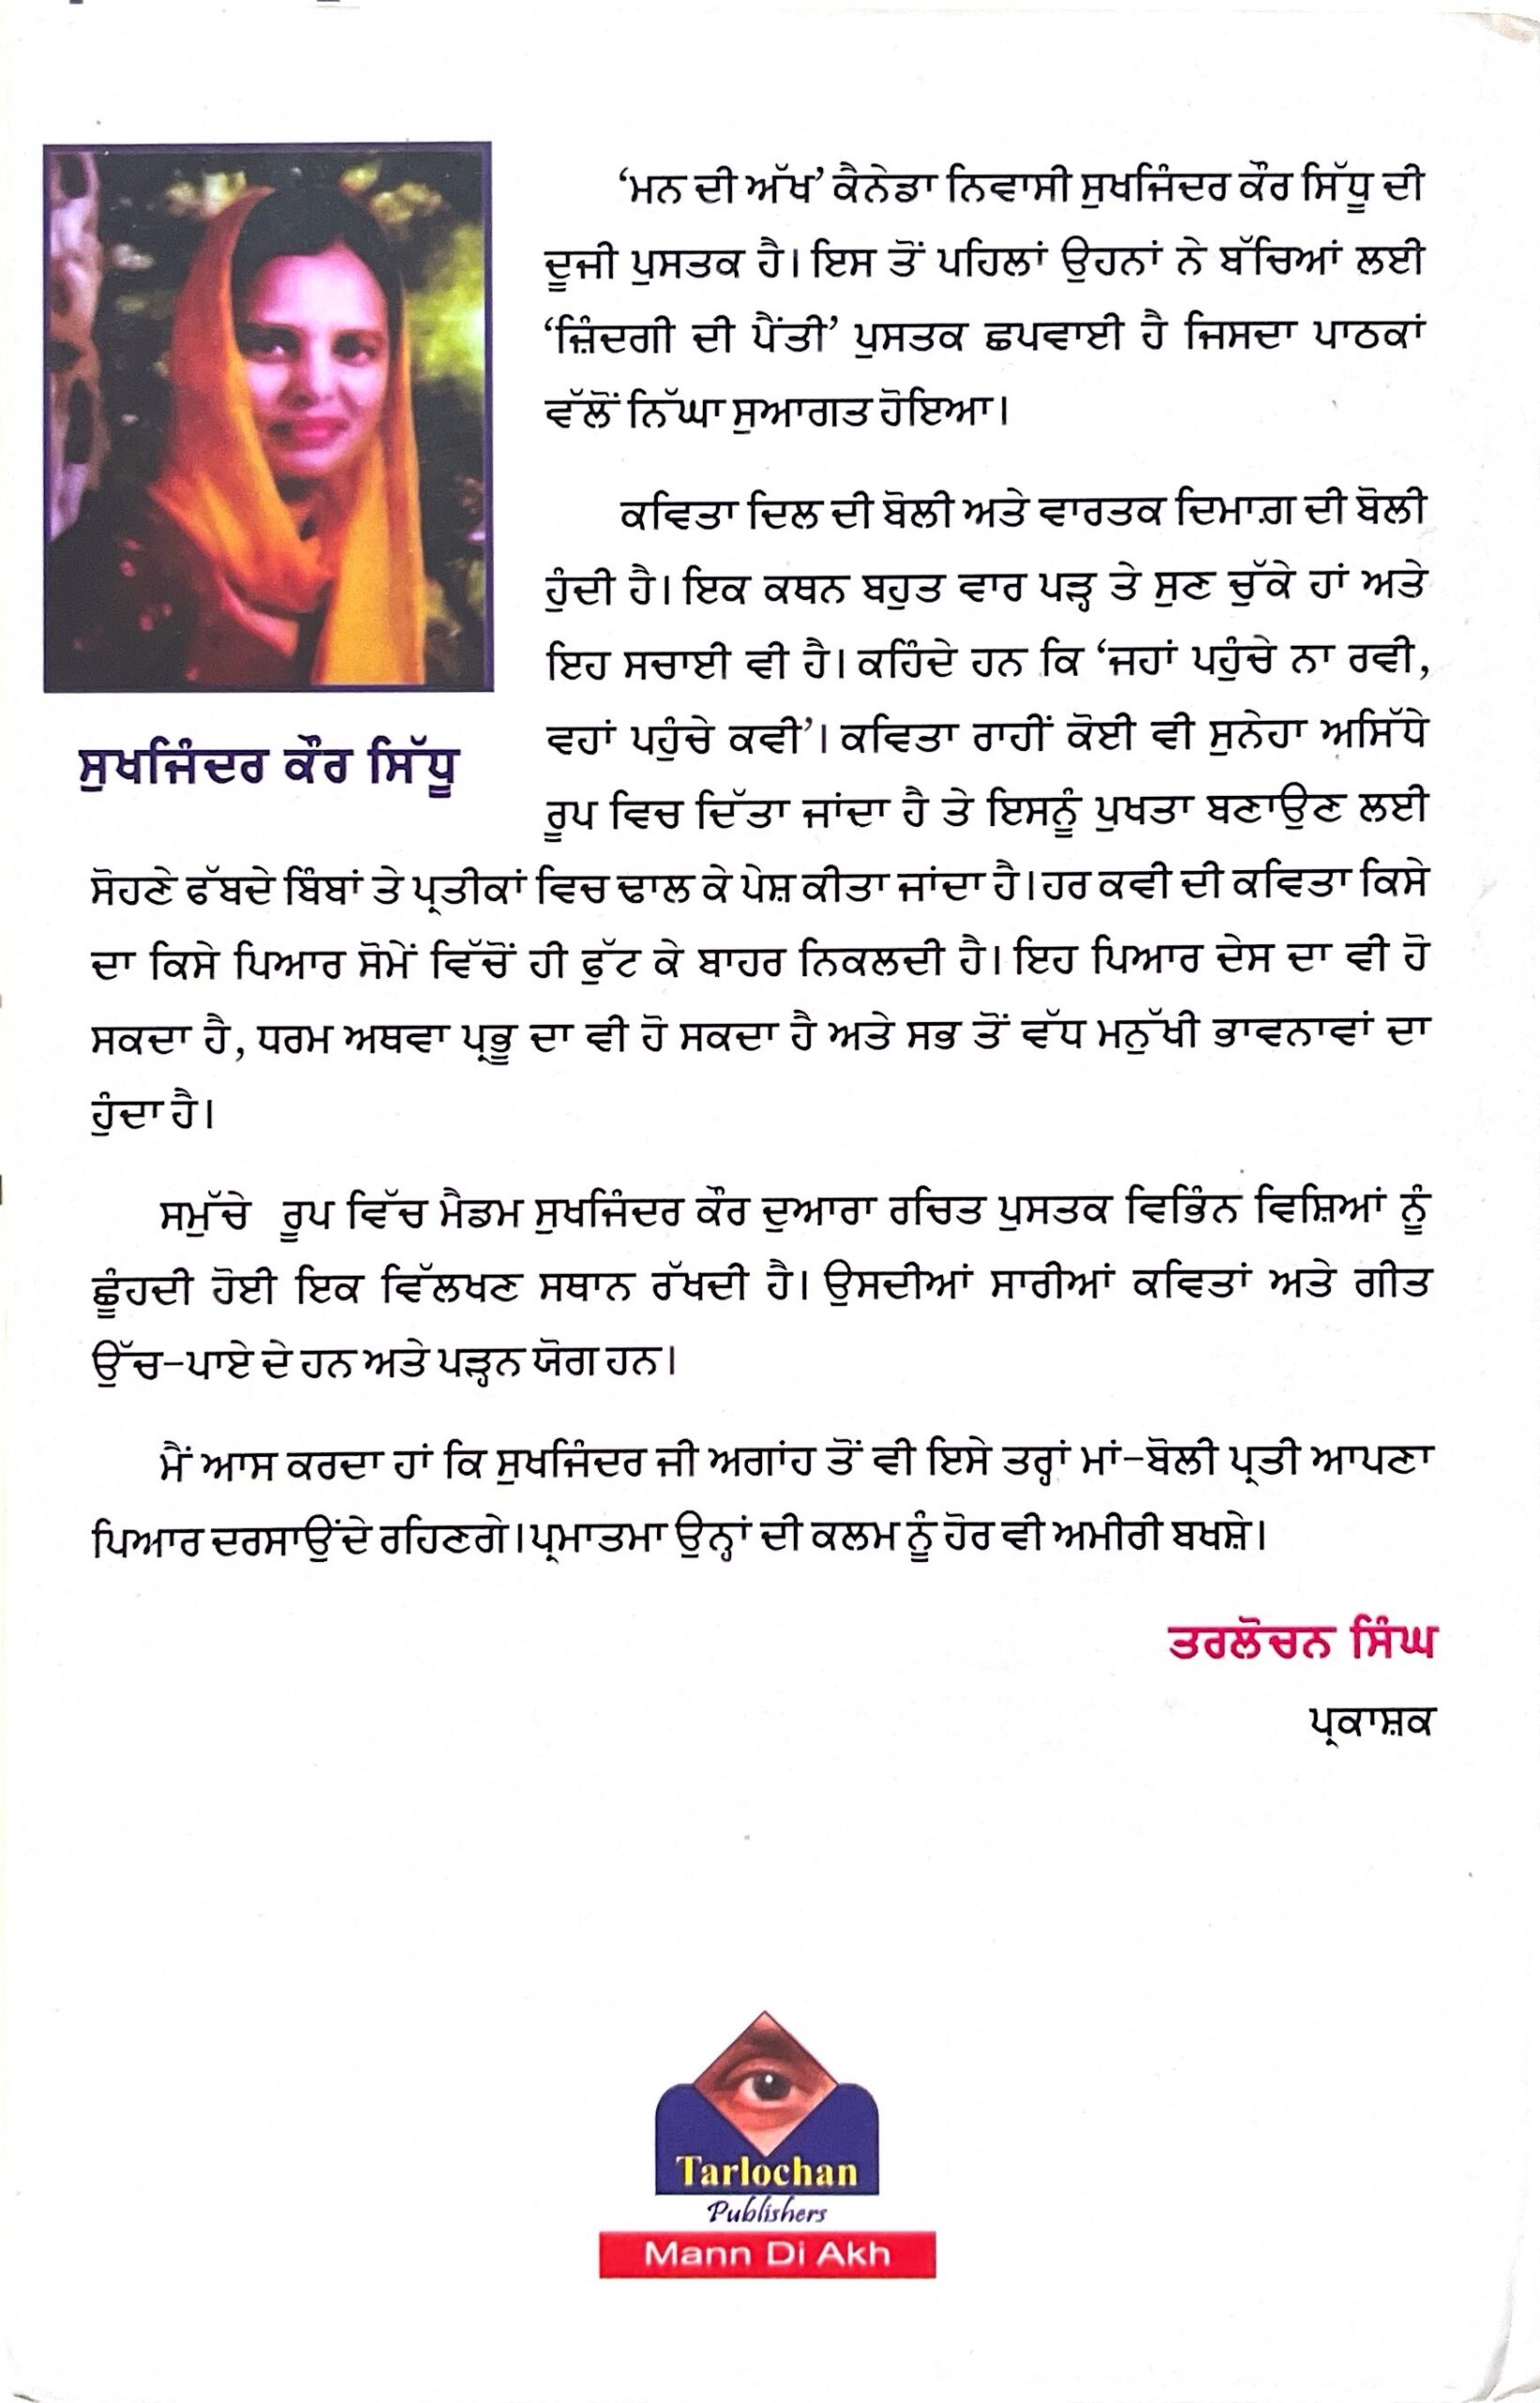 ‘ਮਨ ਦੀ ਅੱਖ’ ਕੈਨੇਡਾ ਨਿਵਾਸੀ ਸੁਖਜਿੰਦਰ ਕੌਰ ਸਿੱਧੂ ਦੀ
ਦੂਜੀ ਪੁਸਤਕ ਹੈ। ਇਸ ਤੋਂ ਪਹਿਲਾਂ ਉਹਨਾਂ ਨੇ ਬੱਚਿਆਂ ਲਈ
‘ਜ਼ਿੰਦਗੀ ਦੀ ਪੈਂਤੀ’ ਪੁਸਤਕ ਛਪਵਾਈ ਹੈ ਜਿਸਦਾ ਪਾਠਕਾਂ
ਵੱਲੋਂ ਨਿੱਘਾ ਸੁਆਗਤ ਹੋਇਆ।
ਕਵਿਤਾ ਦਿਲ ਦੀ ਬੋਲੀ ਅਤੇ ਵਾਰਤਕ ਦਿਮਾਗ਼ ਦੀ ਬੋਲੀ
ਹੁੰਦੀ ਹੈ। ਇਕ ਕਥਨ ਬਹੁਤ ਵਾਰ ਪੜ੍ਹ ਤੇ ਸੁਣ ਚੁੱਕੇ ਹਾਂ ਅਤੇ
ਇਹ ਸਚਾਈ ਵੀ ਹੈ। ਕਹਿੰਦੇ ਹਨ ਕਿ ‘ਜਹਾਂ ਪਹੁੰਚੇ ਨਾ ਰਵੀ,
ਵਹਾਂ ਪਹੁੰਚੇ ਕਵੀ’। ਕਵਿਤਾ ਰਾਹੀਂ ਕੋਈ ਵੀ ਸੁਨੇਹਾ ਅਸਿੱਧੇ
ਸੁਖਜਿੰਦਰ ਕੌਰ ਸਿੱਧੂ
ਰੂਪ ਵਿਚ ਦਿੱਤਾ ਜਾਂਦਾ ਹੈ ਤੇ ਇਸਨੂੰ ਪੁਖਤਾ ਬਣਾਉਣ ਲਈ
ਸੋਹਣੇ ਫੱਬਦੇ ਬਿੰਬਾਂ ਤੇ ਪ੍ਰਤੀਕਾਂ ਵਿਚ ਢਾਲ ਕੇ ਪੇਸ਼ ਕੀਤਾ ਜਾਂਦਾ ਹੈ। ਹਰ ਕਵੀ ਦੀ ਕਵਿਤਾ ਕਿਸੇ
ਦਾ ਕਿਸੇ ਪਿਆਰ ਸੋਮੇਂ ਵਿੱਚੋਂ ਹੀ ਫੁੱਟ ਕੇ ਬਾਹਰ ਨਿਕਲਦੀ ਹੈ। ਇਹ ਪਿਆਰ ਦੇਸ ਦਾ ਵੀ ਹੋ
ਸਕਦਾ ਹੈ, ਧਰਮ ਅਥਵਾ ਪ੍ਰਭੂ ਦਾ ਵੀ ਹੋ ਸਕਦਾ ਹੈ ਅਤੇ ਸਭ ਤੋਂ ਵੱਧ ਮਨੁੱਖੀ ਭਾਵਨਾਵਾਂ ਦਾ
ਹੁੰਦਾ ਹੈ।
ਸਮੁੱਚੇ ਰੂਪ ਵਿੱਚ ਮੈਡਮ ਸੁਖਜਿੰਦਰ ਕੌਰ ਦੁਆਰਾ ਰਚਿਤ ਪੁਸਤਕ ਵਿਭਿੰਨ ਵਿਸ਼ਿਆਂ ਨੂੰ
ਛੂੰਹਦੀ ਹੋਈ ਇਕ ਵਿੱਲਖਣ ਸਥਾਨ ਰੱਖਦੀ ਹੈ। ਉਸਦੀਆਂ ਸਾਰੀਆਂ ਕਵਿਤਾਂ ਅਤੇ ਗੀਤ
ਉੱਚ-ਪਾਏ ਦੇ ਹਨ ਅਤੇ ਪੜ੍ਹਨ ਯੋਗ ਹਨ।
ਮੈਂ ਆਸ ਕਰਦਾ ਹਾਂ ਕਿ ਸੁਖਜਿੰਦਰ ਜੀ ਅਗਾਂਹ ਤੋਂ ਵੀ ਇਸੇ ਤਰ੍ਹਾਂ ਮਾਂ-ਬੋਲੀ ਪ੍ਰਤੀ ਆਪਣਾ
ਪਿਆਰ ਦਰਸਾਉਂਦੇ ਰਹਿਣਗੇ। ਪ੍ਰਮਾਤਮਾ ਉਨ੍ਹਾਂ ਦੀ ਕਲਮ ਨੂੰ ਹੋਰ ਵੀ ਅਮੀਰੀ ਬਖਸ਼ੇ।
ਤਰਲੋਚਨ ਸਿੰਘ
ਪ੍ਰਕਾਸ਼ਕ
Tarlochan
Publishers
Mann Di Akh